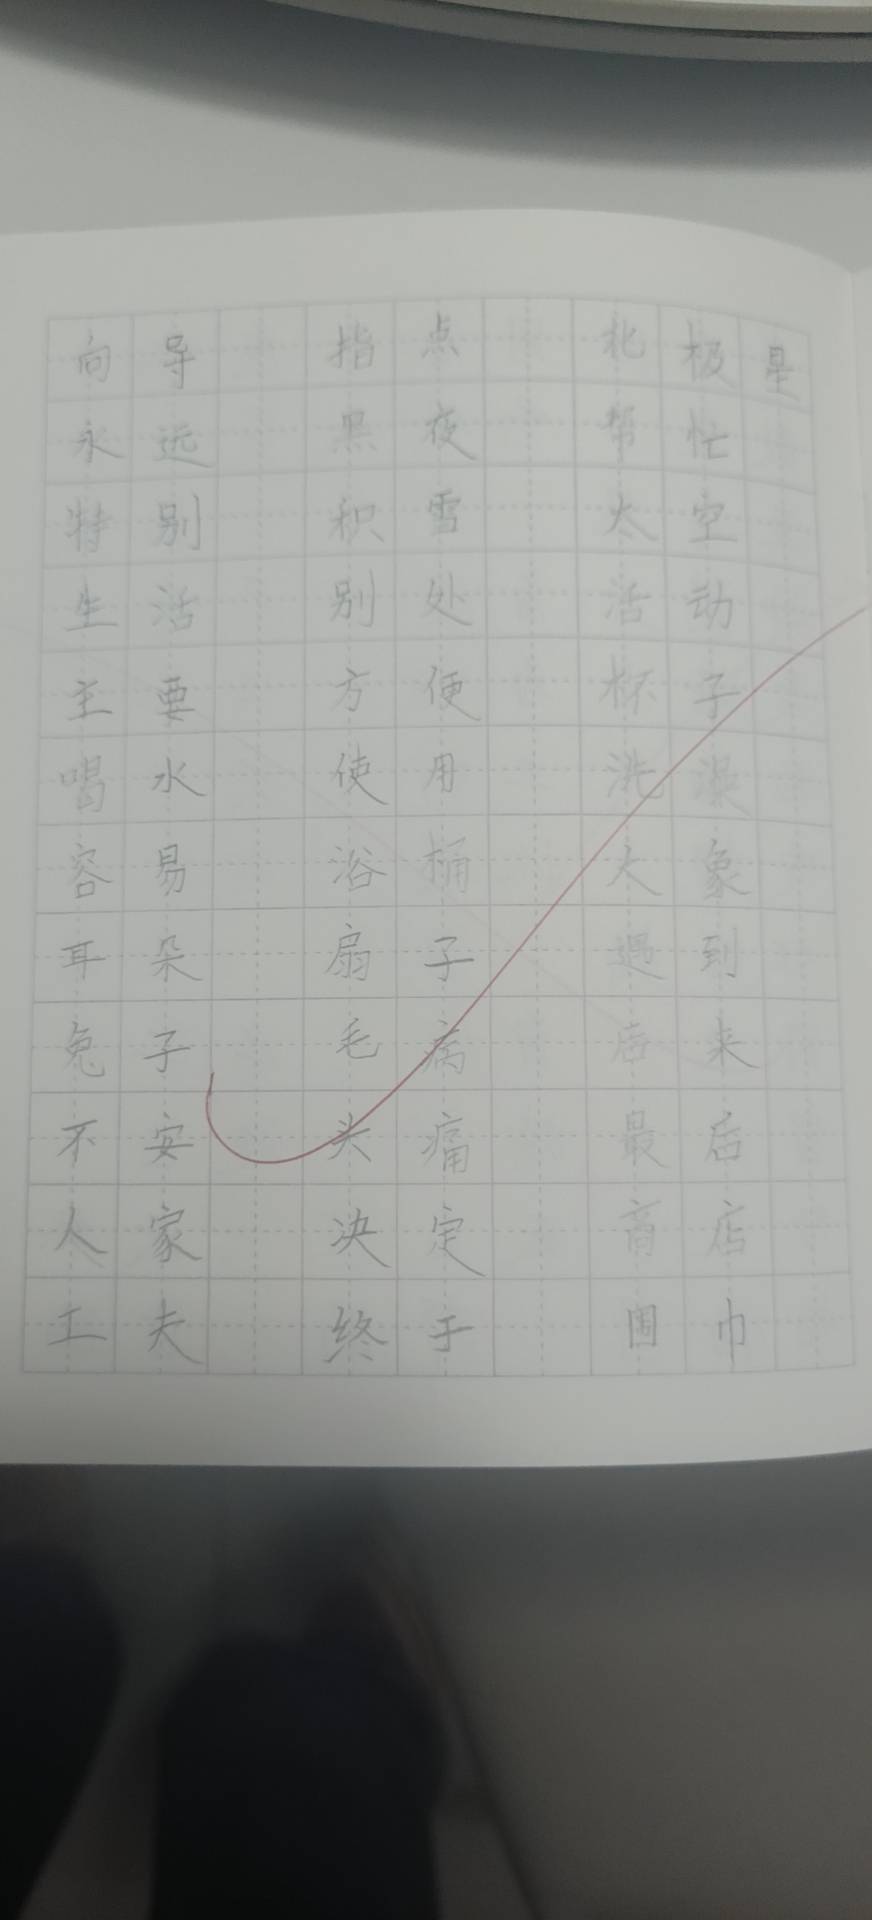 向导 指点 北极星
永远 黑夜 帮忙
特别 积雪 太空
生活 别处 活动
主要 方便 杯子
喝水 使用 洗澡
容易 浴桶 大象
耳朵 扇子 遇到
兔子 毛病 后来
不安 头痛 最后
人家 决定 商店
工夫 终于 围巾